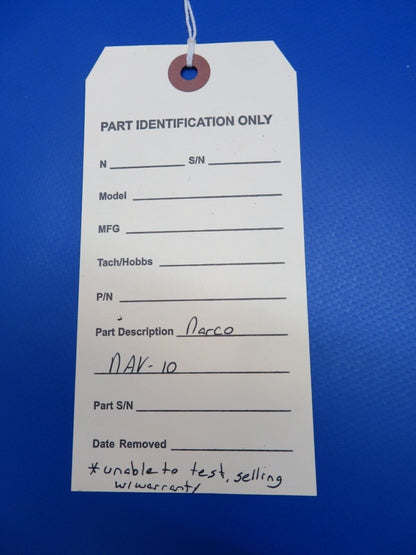 PART IDENTIFICATION ONLY
N S/N
Model
MFG
Tach/Hobbs
P/N
Part Description Narco
NAV-10
Part S/N
Date Removed
* unable to test, selling
w/warranty